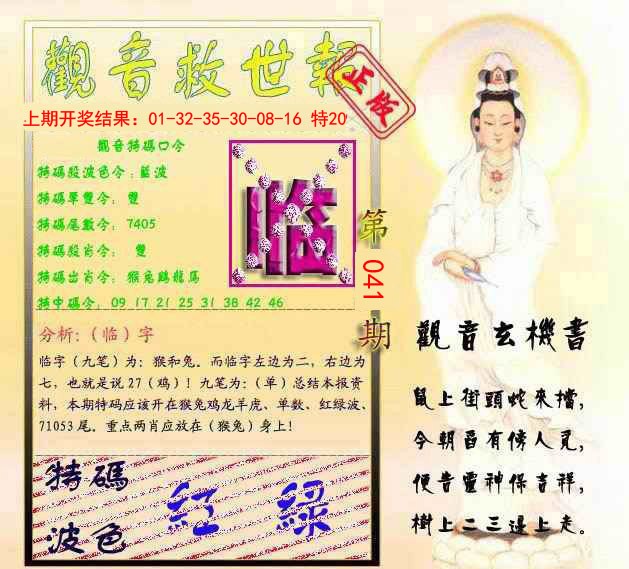 觀音救世報
正版
上期开奖结果：01-32-35-30-08-16 特20
觀音特碼口令
特碼殺波色令：藍波
特碼單雙令： 雙
特碼尾數令： 7405
特碼殺肖令： 雙
特碼出肖令： 猴兔鷄龍馬
特中碼令： 09 17 21 25 31 38 42 46
临
第
041
期
分析：（临）字
临字（九笔）为：猴和兔。而临字左边为二，右边为
七，也就是说 27（鸡）！九笔为：（单）总结本报资
料，本期特码应该开在猴兔鸡龙羊虎、单数、红绿波、
71053 尾。重点两肖应放在（猴兔）身上！
特碼
波色
紅 綠
觀音玄機書
鼠上街頭蛇來擋，
今朝酉有傍人見，
便告靈神保吉祥，
樹上二三邊上走。